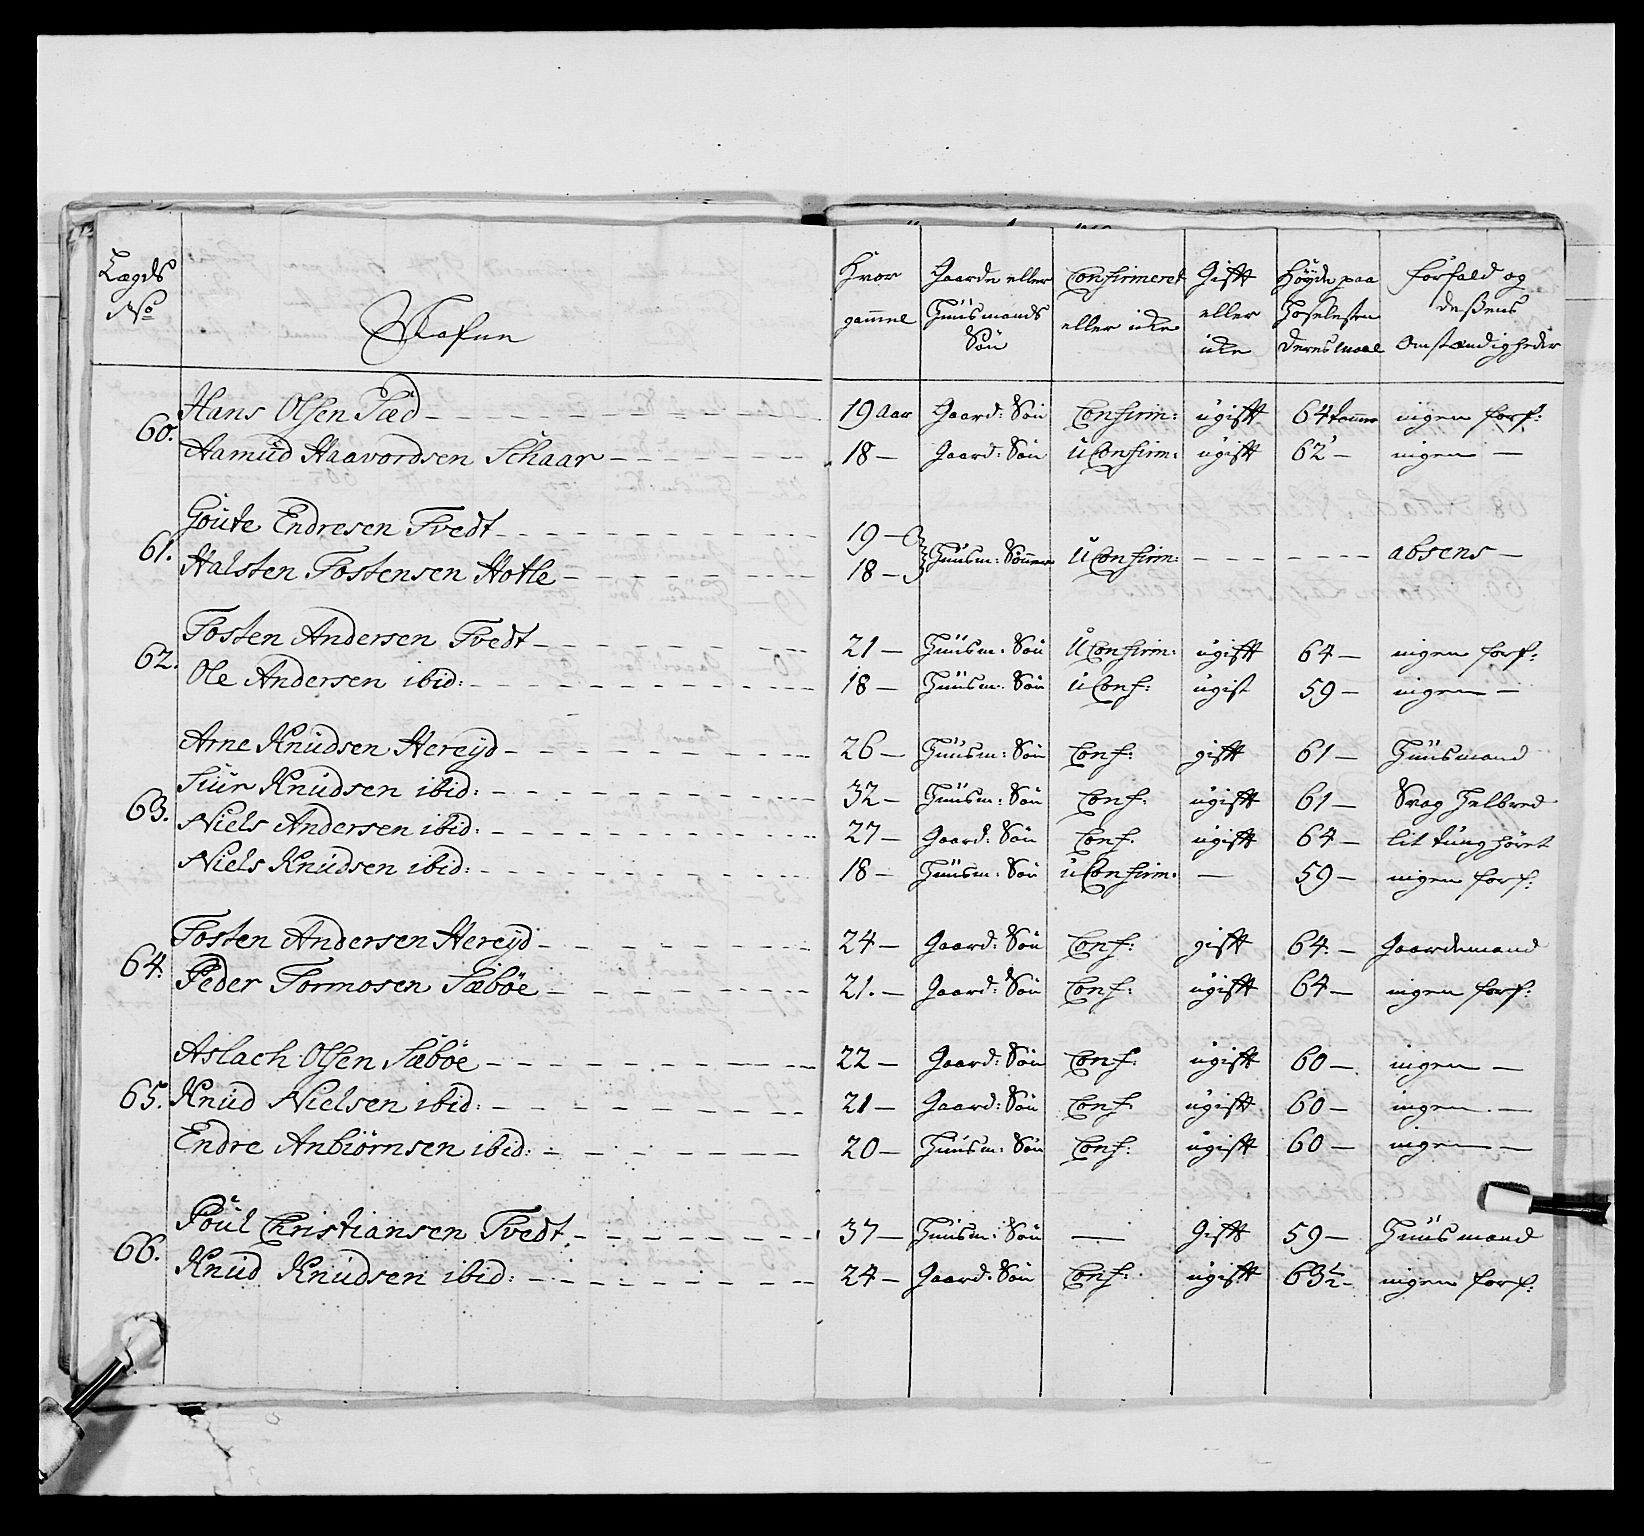 Lægds No Nafne Hvor gammel Gaarde eller Huusmands Søn Confirmeret eller icke Gift eller icke Høyde paa Hoselesten Deres maal Forfald og deßens Omstændigheder
60. Hans Olsen Sæd 19 Aar Gaard: Søn Confirm: ugift 64 tomme ingen forf:
Aamund Haavordsen Schaar 18 — Gaard: Søn uConfirm: ugift 62 — ingen —
61. Goute Endresen Tvedt 19 —
Halsten Tostensen Hotle 18 — Huusm: Sønner uConfirm: absens —
62. Tosten Andersen Tvedt 21 — Huusm: Søn uConfirm: ugift 64 — ingen forf:
Ole Andersen ibid: 18 — Huusm: Søn uConf: ugift 59 — ingen —
63. Arne Knudsen Hereijd 26 — Huusm: Søn Conf: gift 61 — Huusmand
Siur Knudsen ibid: 32 — Huusm: Søn Conf: ugift 61 — Svag Helbred
Niels Andersen ibid: 27 — Gaard: Søn Conf: ugift 64 — lit tunghøret
Niels Knudsen ibid: 18 — Huusm: Søn uConfirm: — 59 — ingen forf:
64. Tosten Andersen Hereijd 24 — Gaard: Søn Conf: gift 64. — Gaardemand
Peder Tormosen Sæbøe 21. — Gaard: Søn Conf: ugift 64 — ingen forf:
65. Aslach Olsen Sæbøe 22 — Gaard: Søn Conf: ugift 60 — ingen —
Knud Nielsen ibid: 21 — Gaard: Søn Conf: ugift 60 — ingen —
Endre Anbiørnsen ibid: 20 — Huusm: Søn Conf: ugift 60 — ingen —
66. Poul Christiansen Tvedt 37 — Huusm: Søn — Gift 59 — Huusmand
Knud Knudsen ibid: 24 — Gaard: Søn Conf: ugift 63½ — ingen forf: